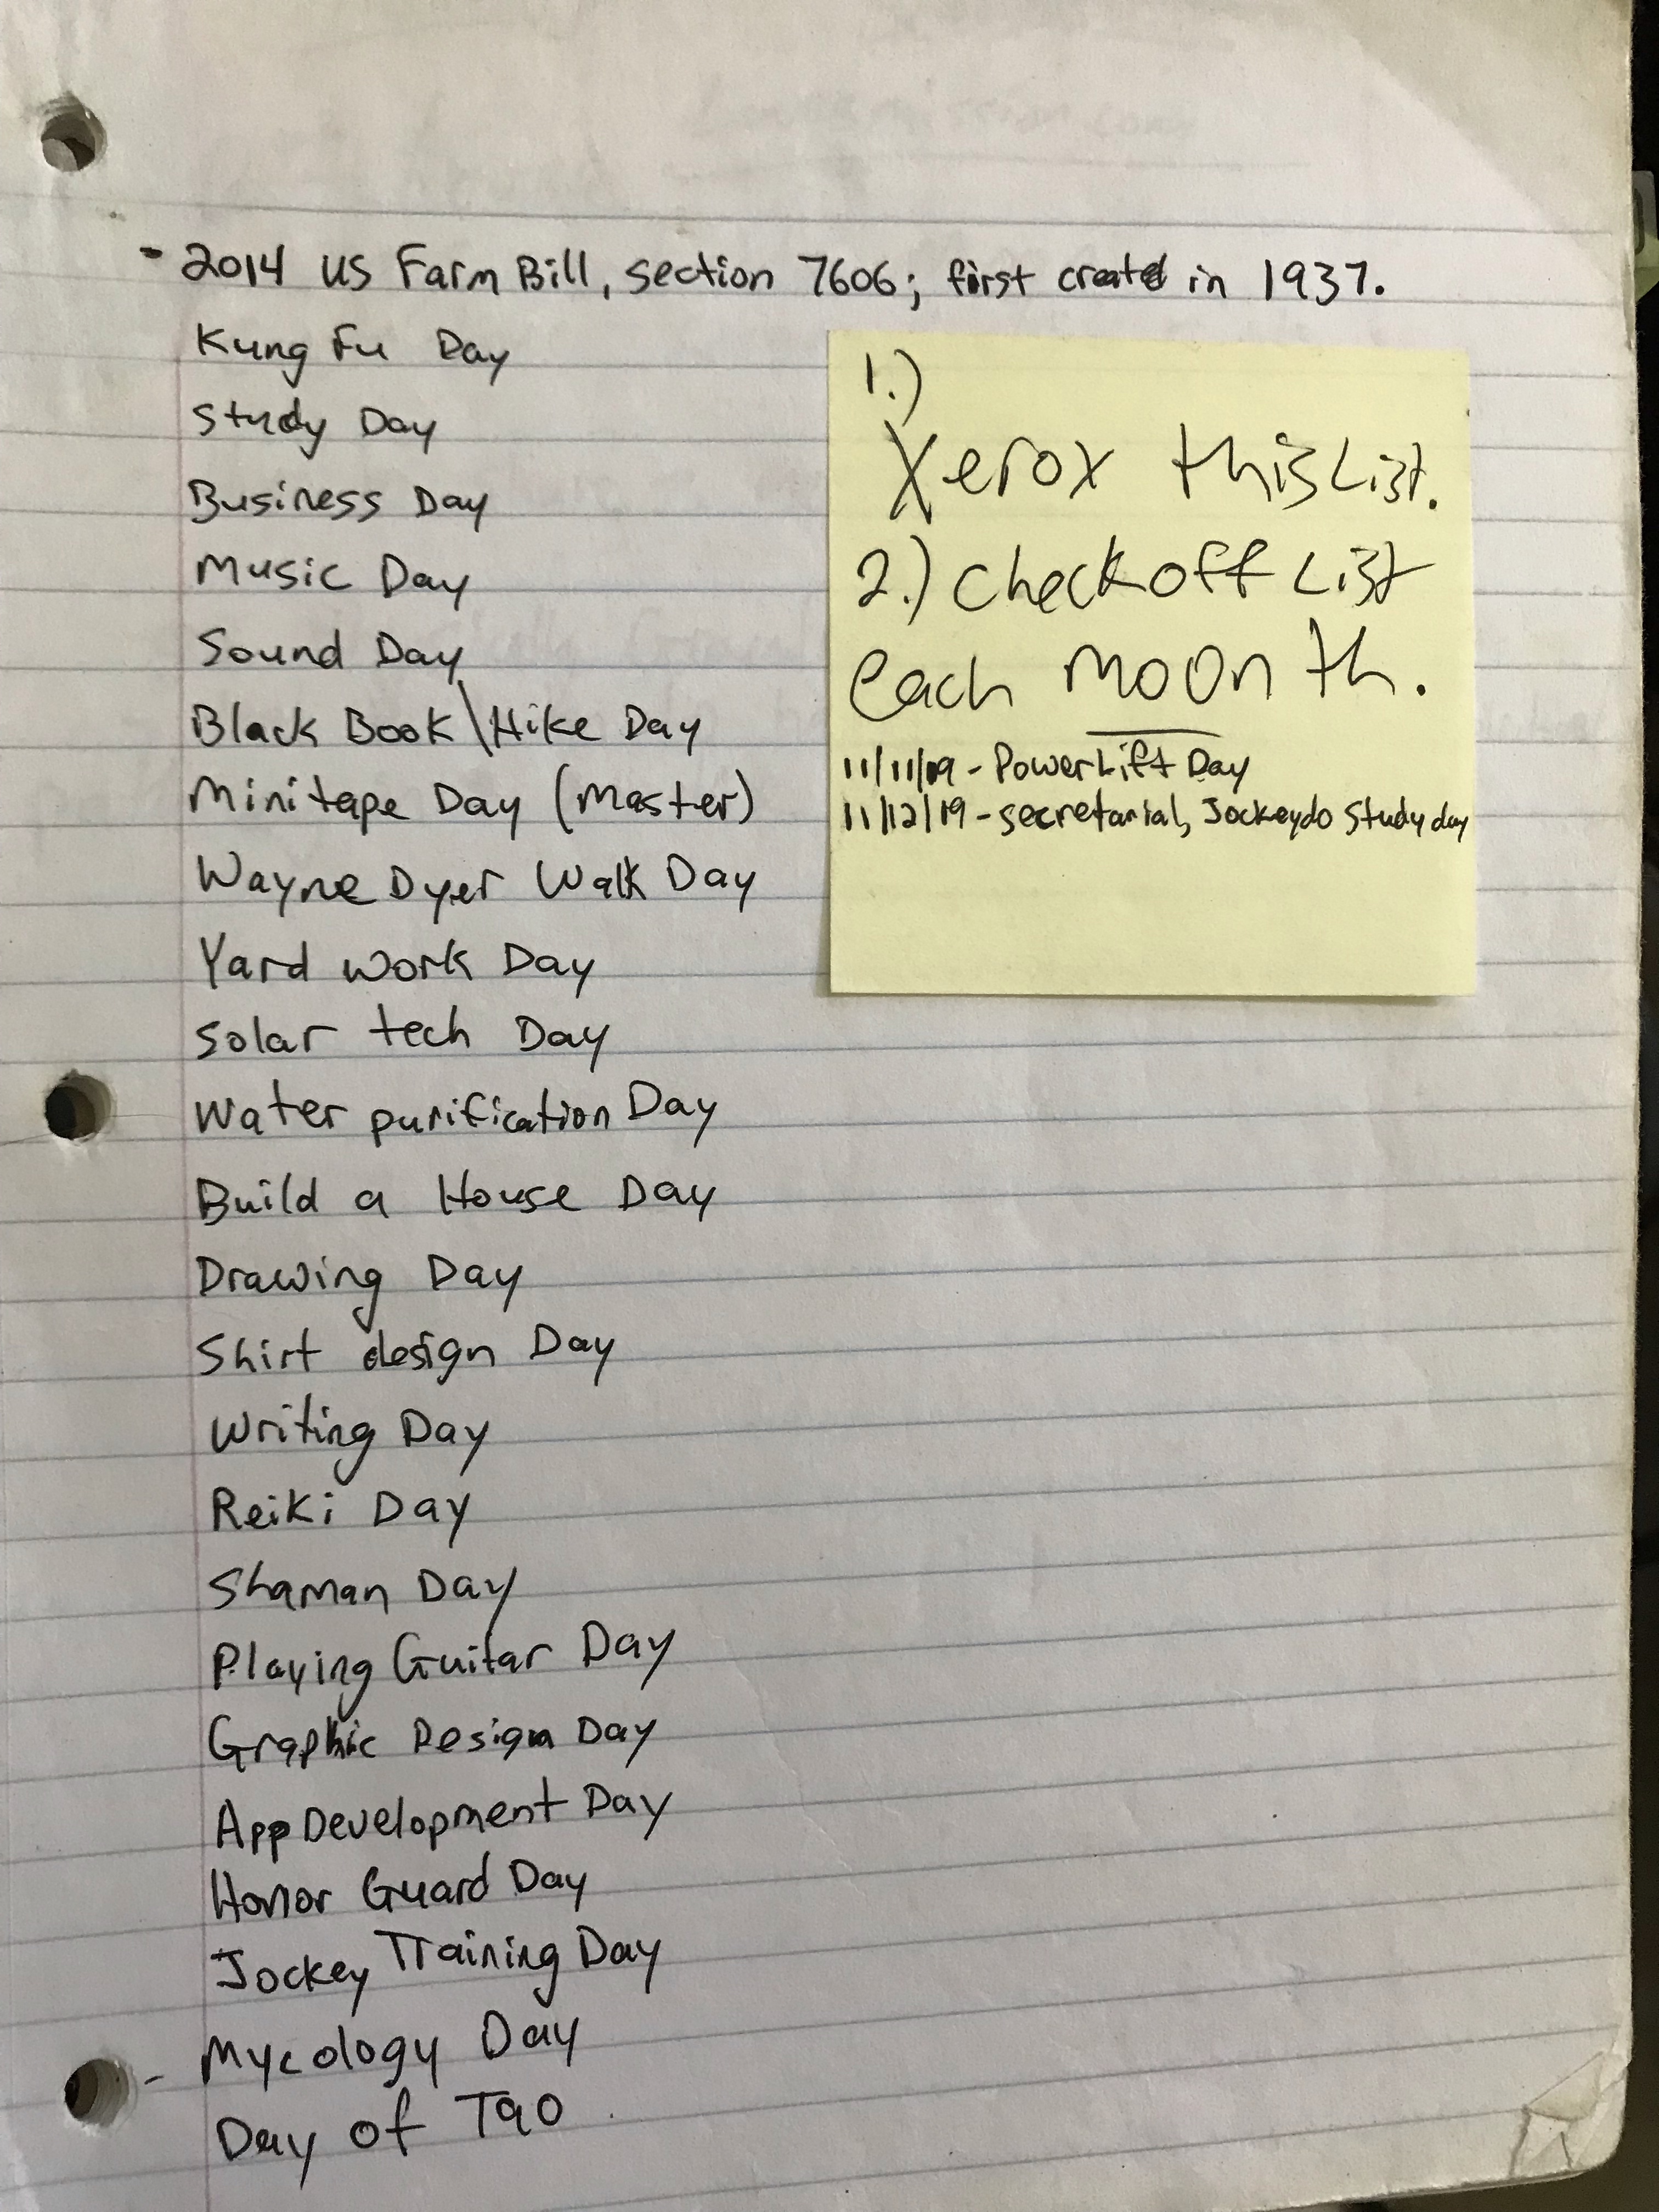 - 2014 US Farm Bill, section 7606; first created in 1937.
Kung Fu Day
Study Day
Business Day
Music Day
Sound Day
Black Book \ Hike Day
Minitape Day (Master)
Wayne Dyer Walk Day
Yard work Day
Solar tech Day
Water purification Day
Build a House Day
Drawing Day
Shirt design Day
Writing Day
Reiki Day
Shaman Day
Playing Guitar Day
Graphic Design Day
App Development Day
Honor Guard Day
Jockey Training Day
- Mycology Day
Day of Tao
1.)
Xerox this List.
2.) Check off List
each moonth.
11/11/19 - PowerLift Day
11/12/19 - secretarial, Jockeydo Study day